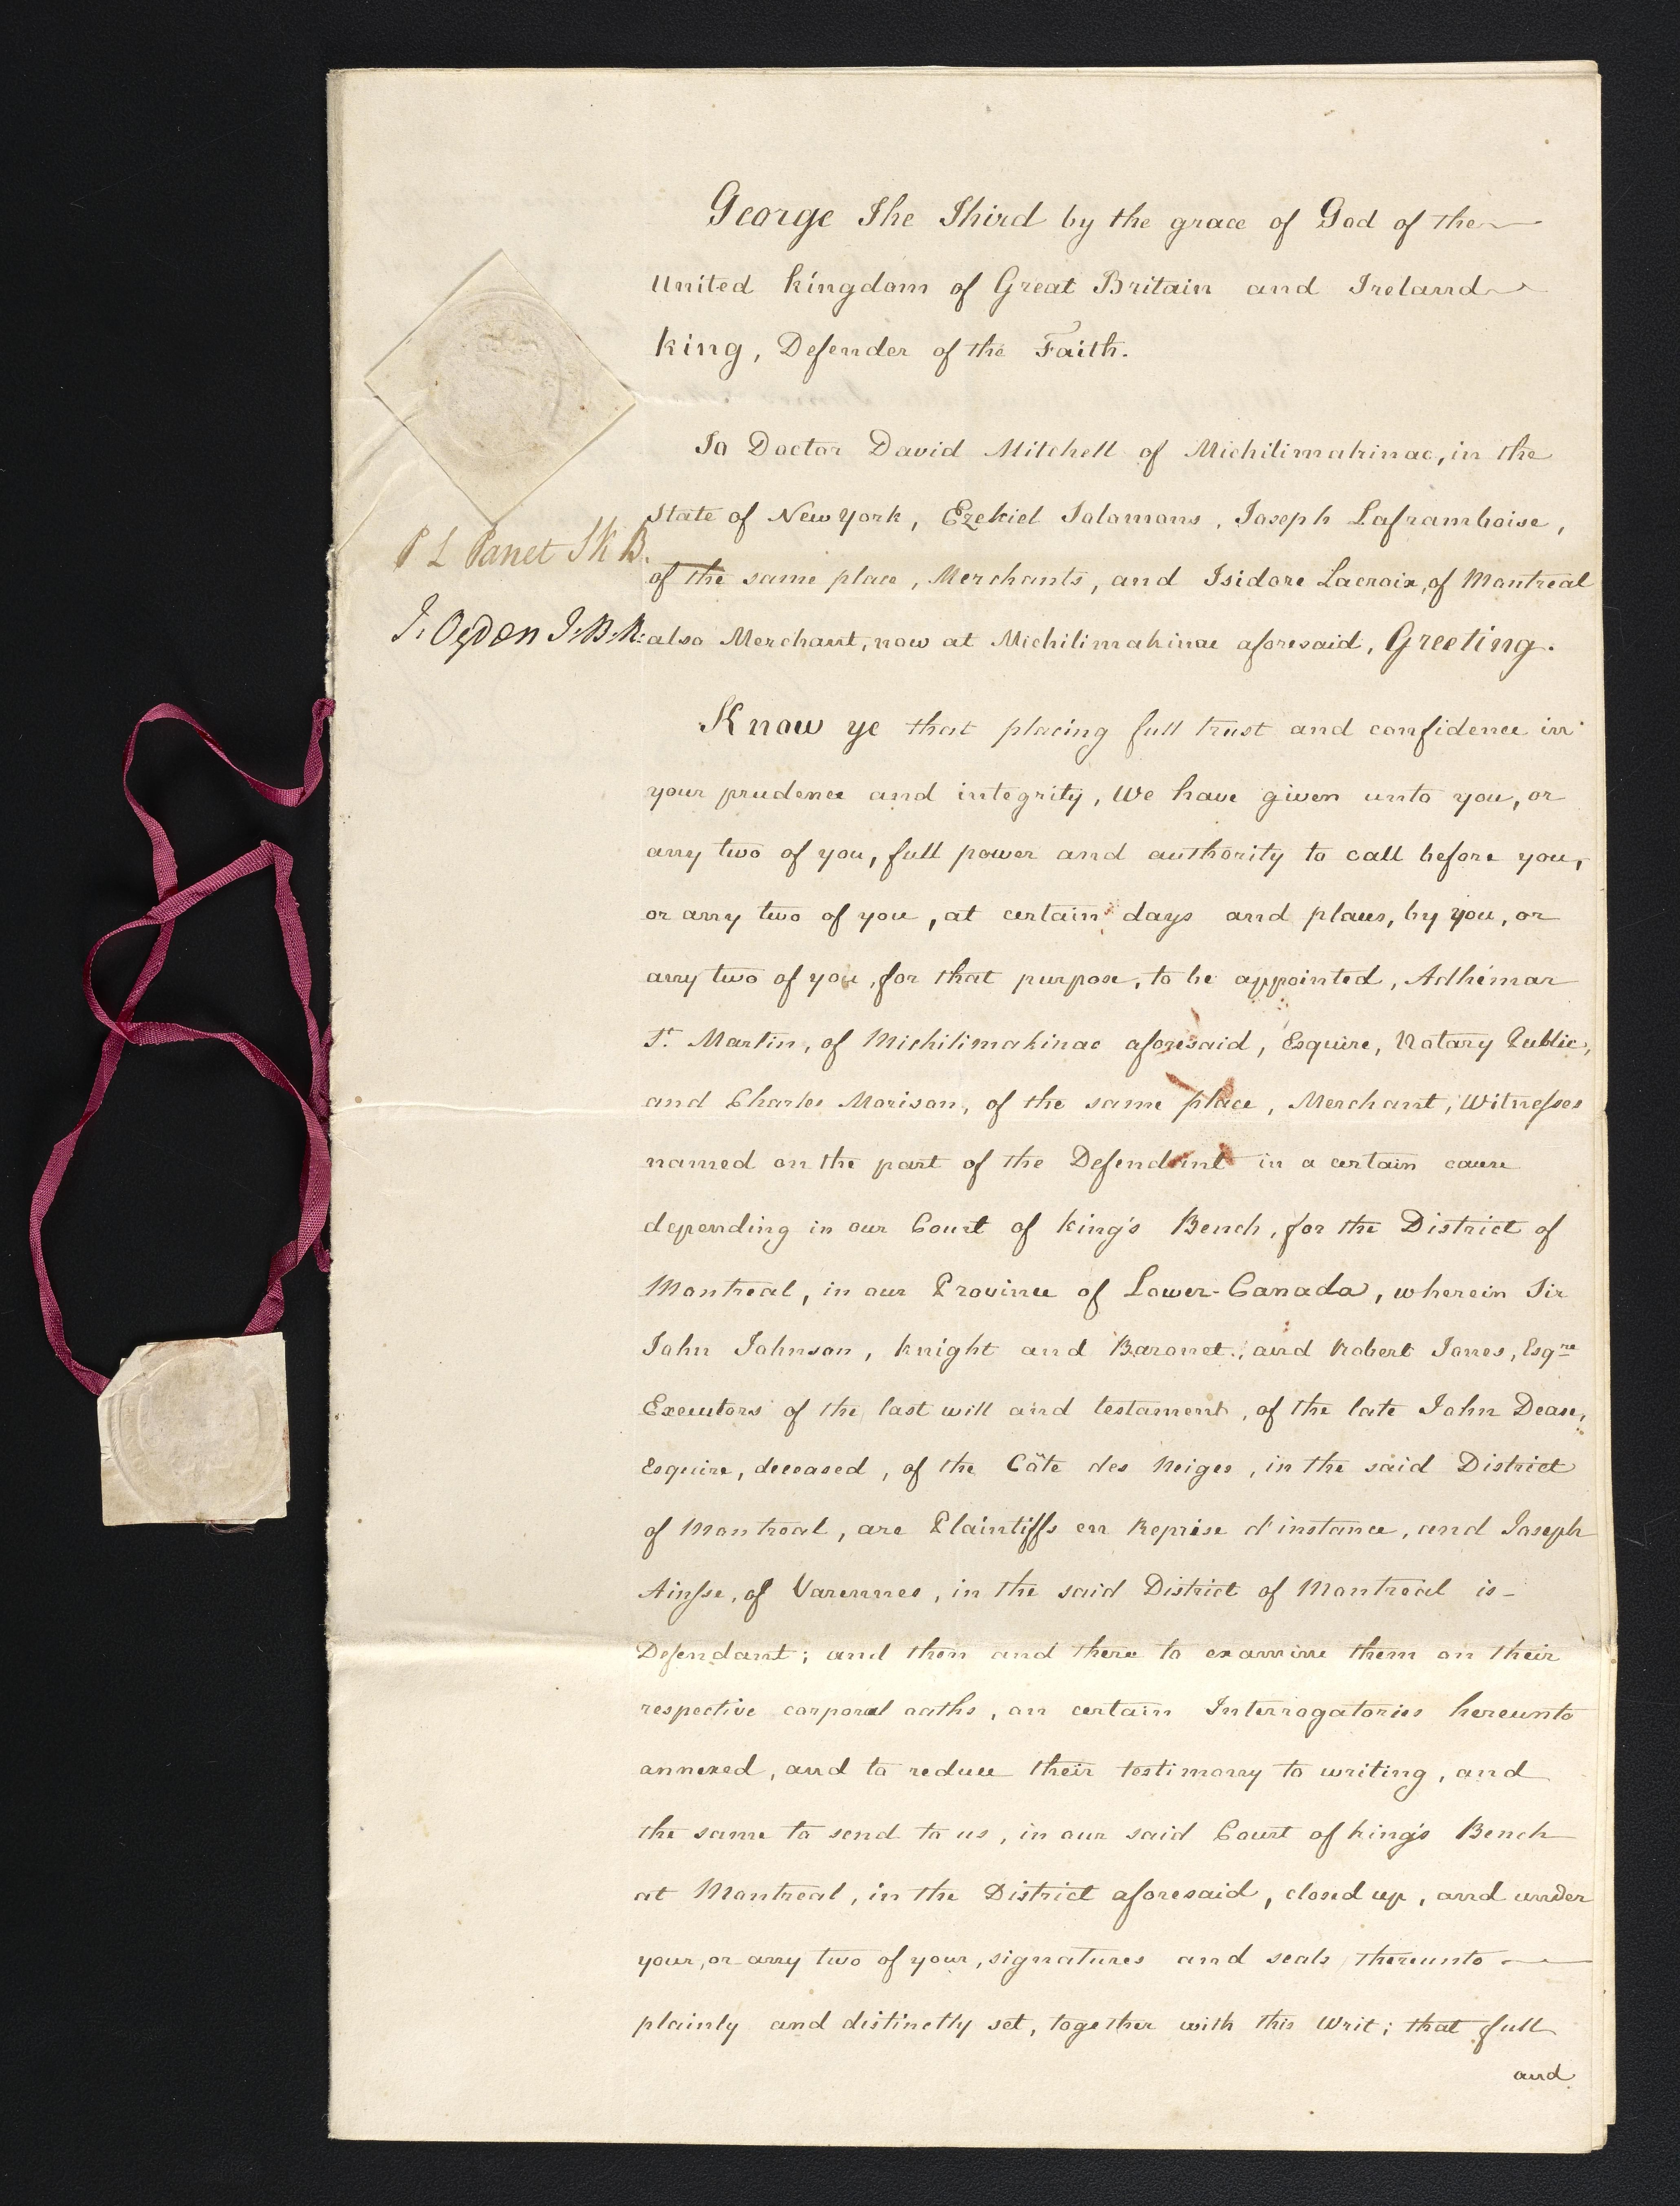 George The Third by the grace of God of the
United Kingdom of Great Britain and Ireland
King, Defender of the Faith.
To Doctor David Mitchell of Michilimakinac, in the
State of New York, Ezekiel Solomons, Joseph Laframboise,
P L Panet J K B.
of the same place, Merchants, and Isidore Lacroix, of Montreal
I. Ogden J. B. R.
also Merchant, now at Michilimakinac aforesaid, Greeting.
Know ye that placing full trust and confidence in
your prudence and integrity, We have given unto you, or
any two of you, full power and authority to call before you,
or any two of you, at certain days and places, by you, or
any two of you, for that purpose, to be appointed, Adhémar
St. Martin, of Michilimakinac aforesaid, Esquire, Notary Public,
and Charles Morison, of the same place, Merchant, Witnesses
named on the part of the Defendant in a certain cause
depending in our Court of King's Bench, for the District of
Montreal, in our Province of Lower-Canada, wherein Sir
John Johnson, Knight and Baronet, and Robert Jones, Esqre
Executors of the last will and testament, of the late John Dease,
Esquire, deceased, of the Côte des Neiges, in the said District
of Montreal, are Plaintiffs en Reprise d'instance, and Joseph
Ainsse, of Varennes, in the said District of Montreal is-
Defendant; and then and there to examine them on their
respective corporal oaths, on certain Interrogatories hereunto
annexed, and to reduce their testimony to writing, and
the same to send to us, in our said Court of King's Bench
at Montreal, in the District aforesaid, closed up, and under
your, or any two of your, signatures and seals thereunto
plainly and distinctly set, together with this Writ; that full
and